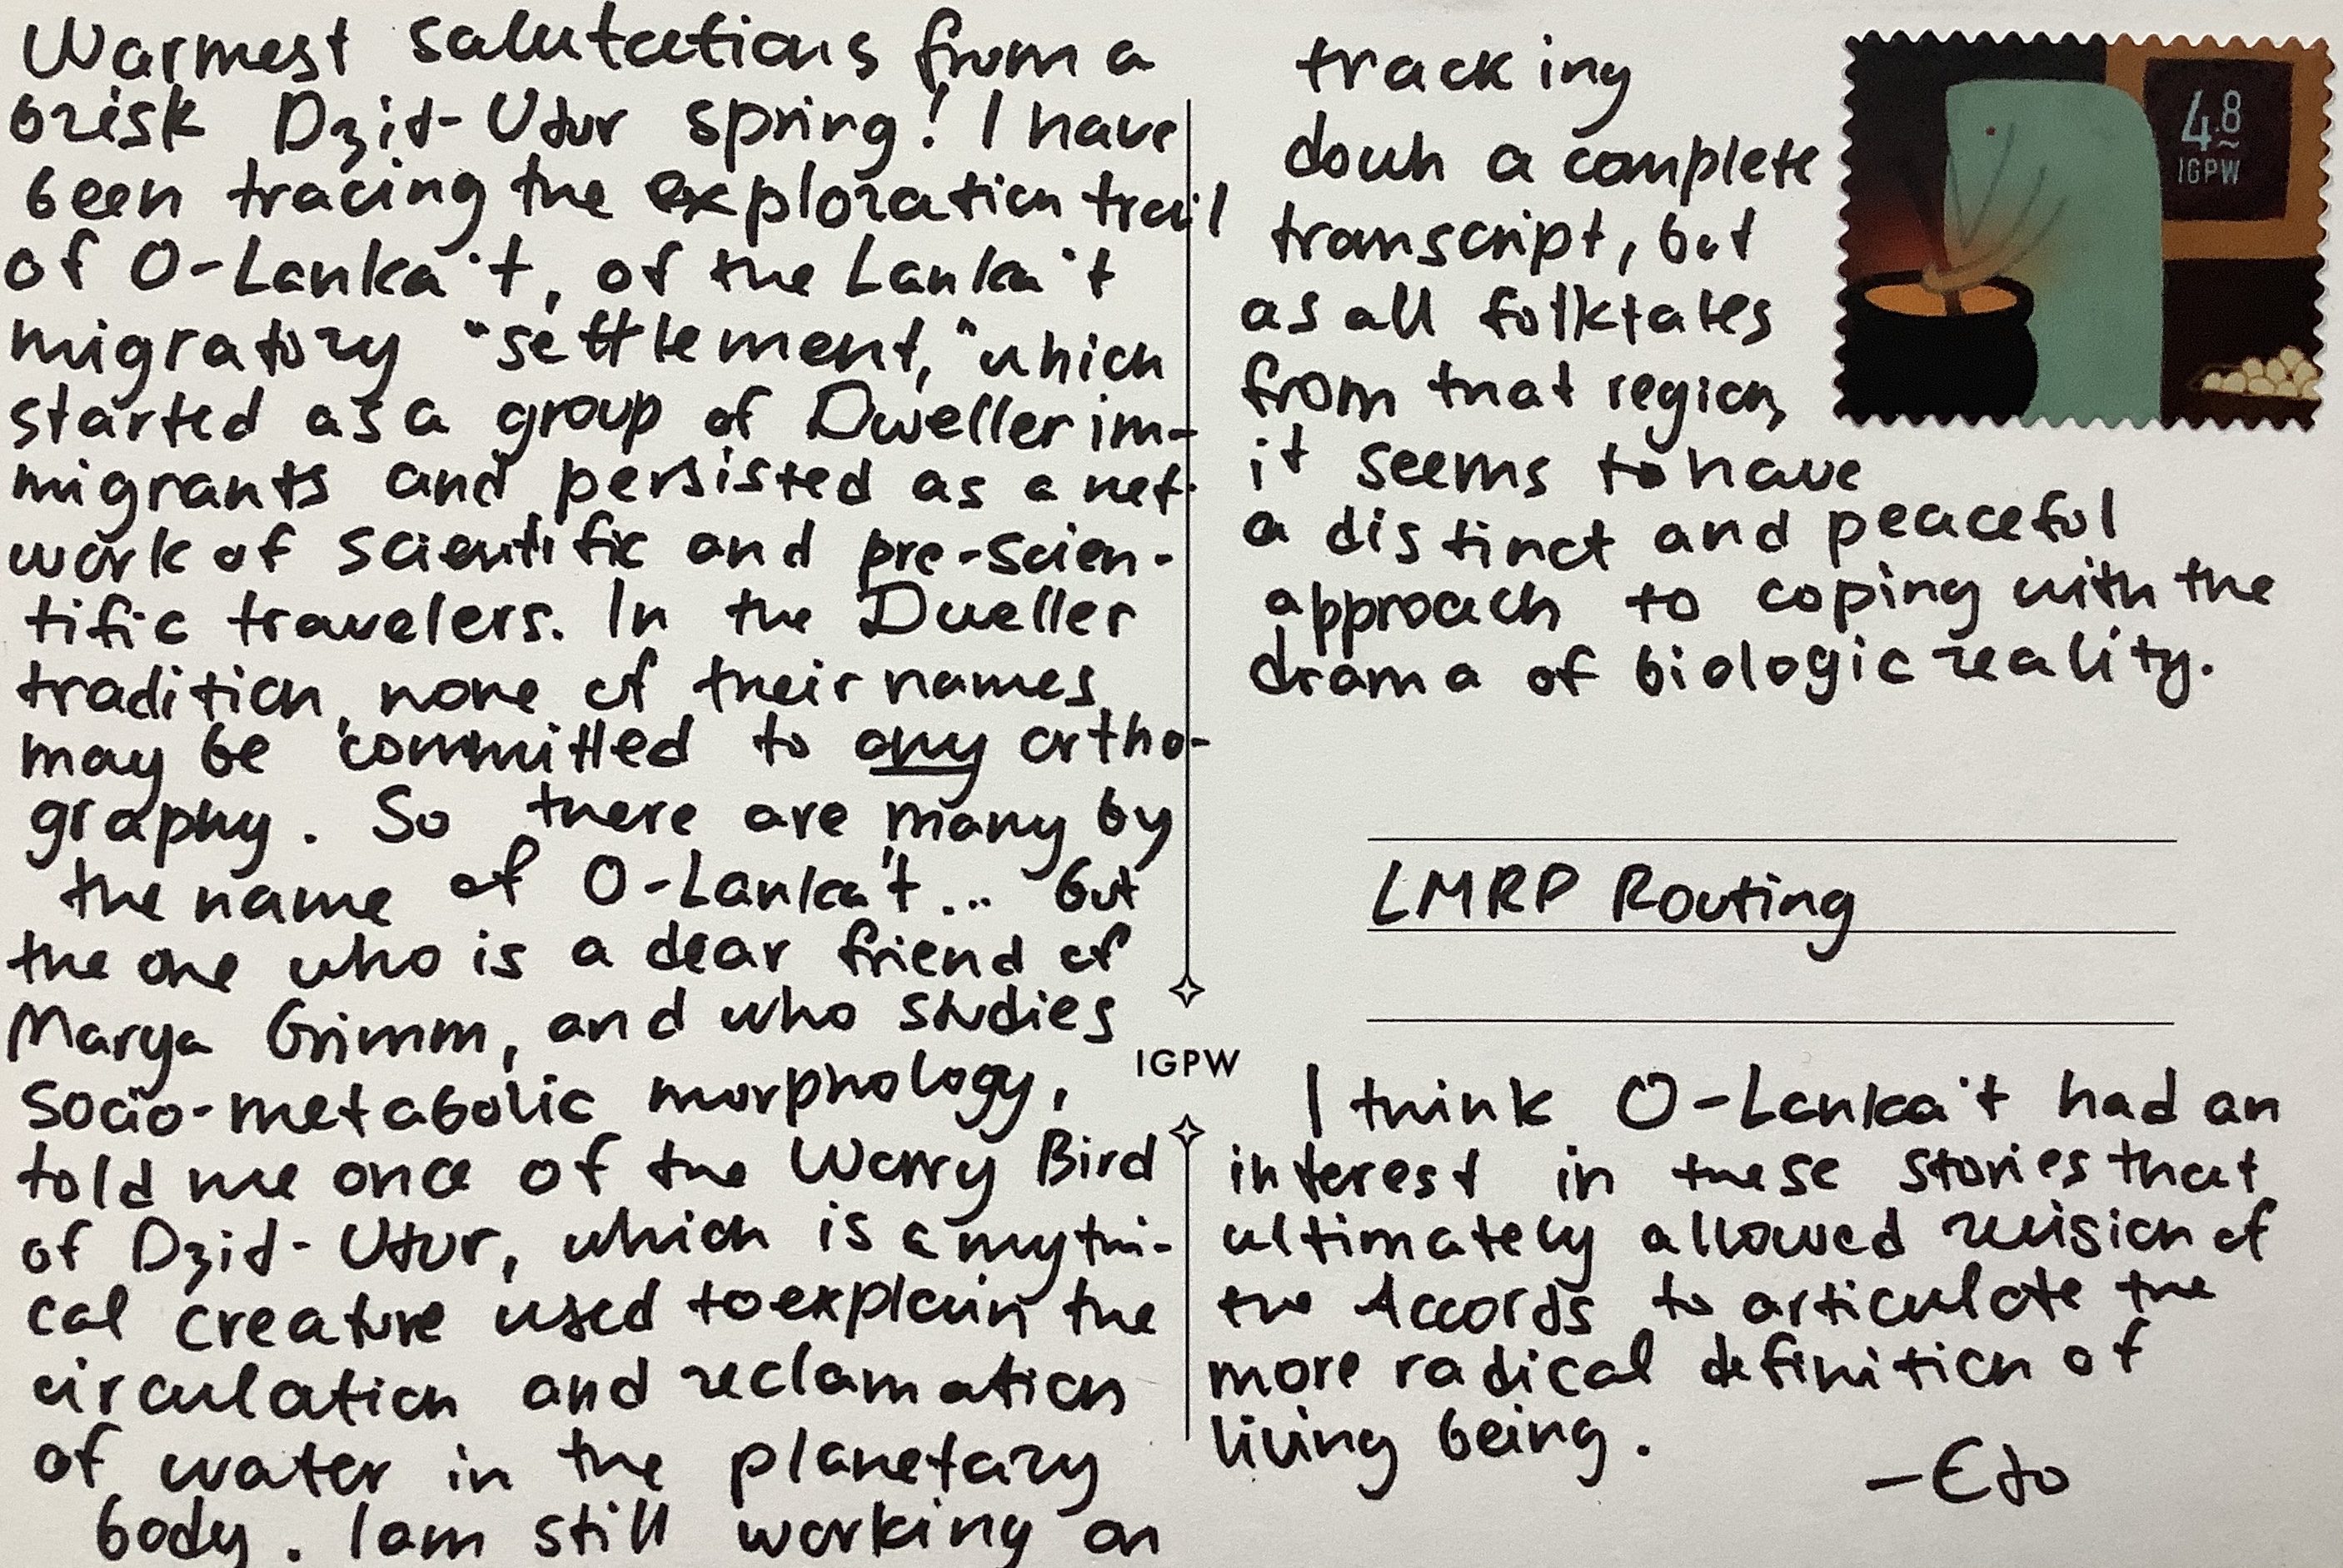 Warmest salutations from a
brisk Dzit-Utur spring! I have
been tracing the exploration trail
of O-Lanka't, of the Lanka't
migratory "settlement," which
started as a group of Dweller im-
migrants and persisted as a net-
work of scientific and pre-scien-
tific travelers. In the Dweller
tradition, none of their names
may be committed to any ortho-
graphy. So there are many by
the name of O-Lanka't... but
the one who is a dear friend of
Marya Grimm, and who studies
socio-metabolic morphology,
told me once of the Worry Bird
of Dzid-Utur, which is a mythi-
cal creature used to explain the
circulation and reclamation
of water in the planetary
body. I am still working on
tracking
down a complete
transcript, but
as all folktales
from that region,
it seems to have
a distinct and peaceful
approach to coping with the
drama of biologic reality.
4.8
IGPW
LMRP Routing
IGPW
I think O-Lanka't had an
interest in these stories that
ultimately allowed revision of
the Accords to articulate the
more radical definition of
living being.
-Eto